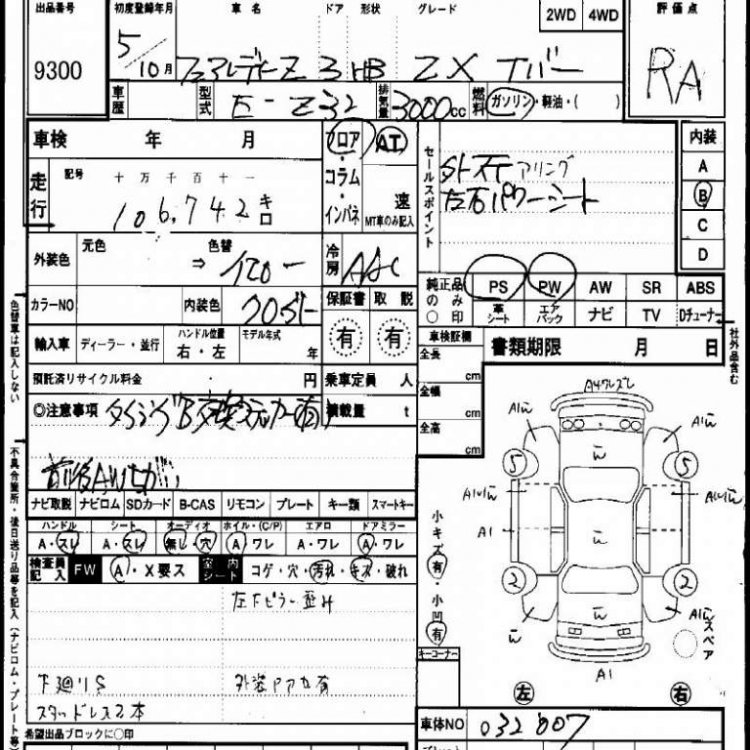 出品番号 初度登録年月 車名 ドア 形状 グレード 2WD 4WD 評価点
9300 5/10月 フェアレディーZ 3 HB ZX Tバー RA
車歴 型式 E-Z32 排気量 3000cc 燃料 ガソリン・軽油・( )
車検 年 月 フロア・コラム・インパネ AT 速 MT車のみ記入
走行 記号 十万千百十一
106,742キロ
セールスポイント 外ステアリング
左右パワーシート
内装 A B C D
外装色 元色 色替 ⇒ イエロー 冷房 AAC
カラーNO 内装色 保証書 取説
有 有
純正品のみ〇印 PS PW AW SR ABS
革シート エアバック ナビ TV Dチューナー
輸入車 ディーラー・並行 ハンドル位置 右・左 モデル年式 年
車検証欄 書類期限 月 日
全長 cm
全幅 cm
全高 cm
預託済リサイクル料金 円 乗車定員 人
◎注意事項 タイミングB交換ステッカー有り 積載量 t
前後AWちがい
ナビ取説 ナビロム SDカード B-CAS リモコン プレート キー類 スマートキー
ハンドル シート オーディオ ホイル・(C/P) エアロ ドアミラー
A・スレ A・スレ 無し・穴 A・ワレ A・ワレ A・ワレ
検査員記入 FW A・X要ス 室内シート コゲ・穴・汚れ・キズ・破れ
左下ピラー歪み
下廻りS
スタッドレス2本
希望出品ブロックに〇印
色替車は記入しない
不具合箇所・後日送り品等を記入(ナビロム・プレート等)
社外品含む
小キズ 有・小凹 有
キーコーナー
A4ワレズレ
A1 W A1 W
W
5 5
A1 A1
W
2 2
W A1 W
W
スペア
A1
左 右
車体NO 032007